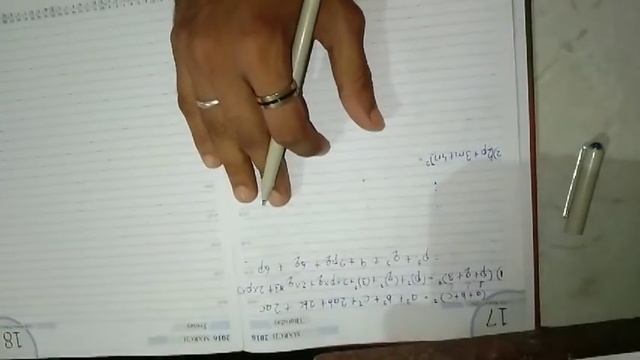 17
MARCH 2016
THURSDAY
(a+b+c)² = a²+b²+c²+2ab+2bc+2ac
1) (p+q+3)² = (p)²+(q)²+(3)²+2×p×q+2×q×3+2×p×3
= p²+q²+9+2pq+6q+6p
2) (2p+3m+4n)² =
18
MARCH 2016
FRIDAY